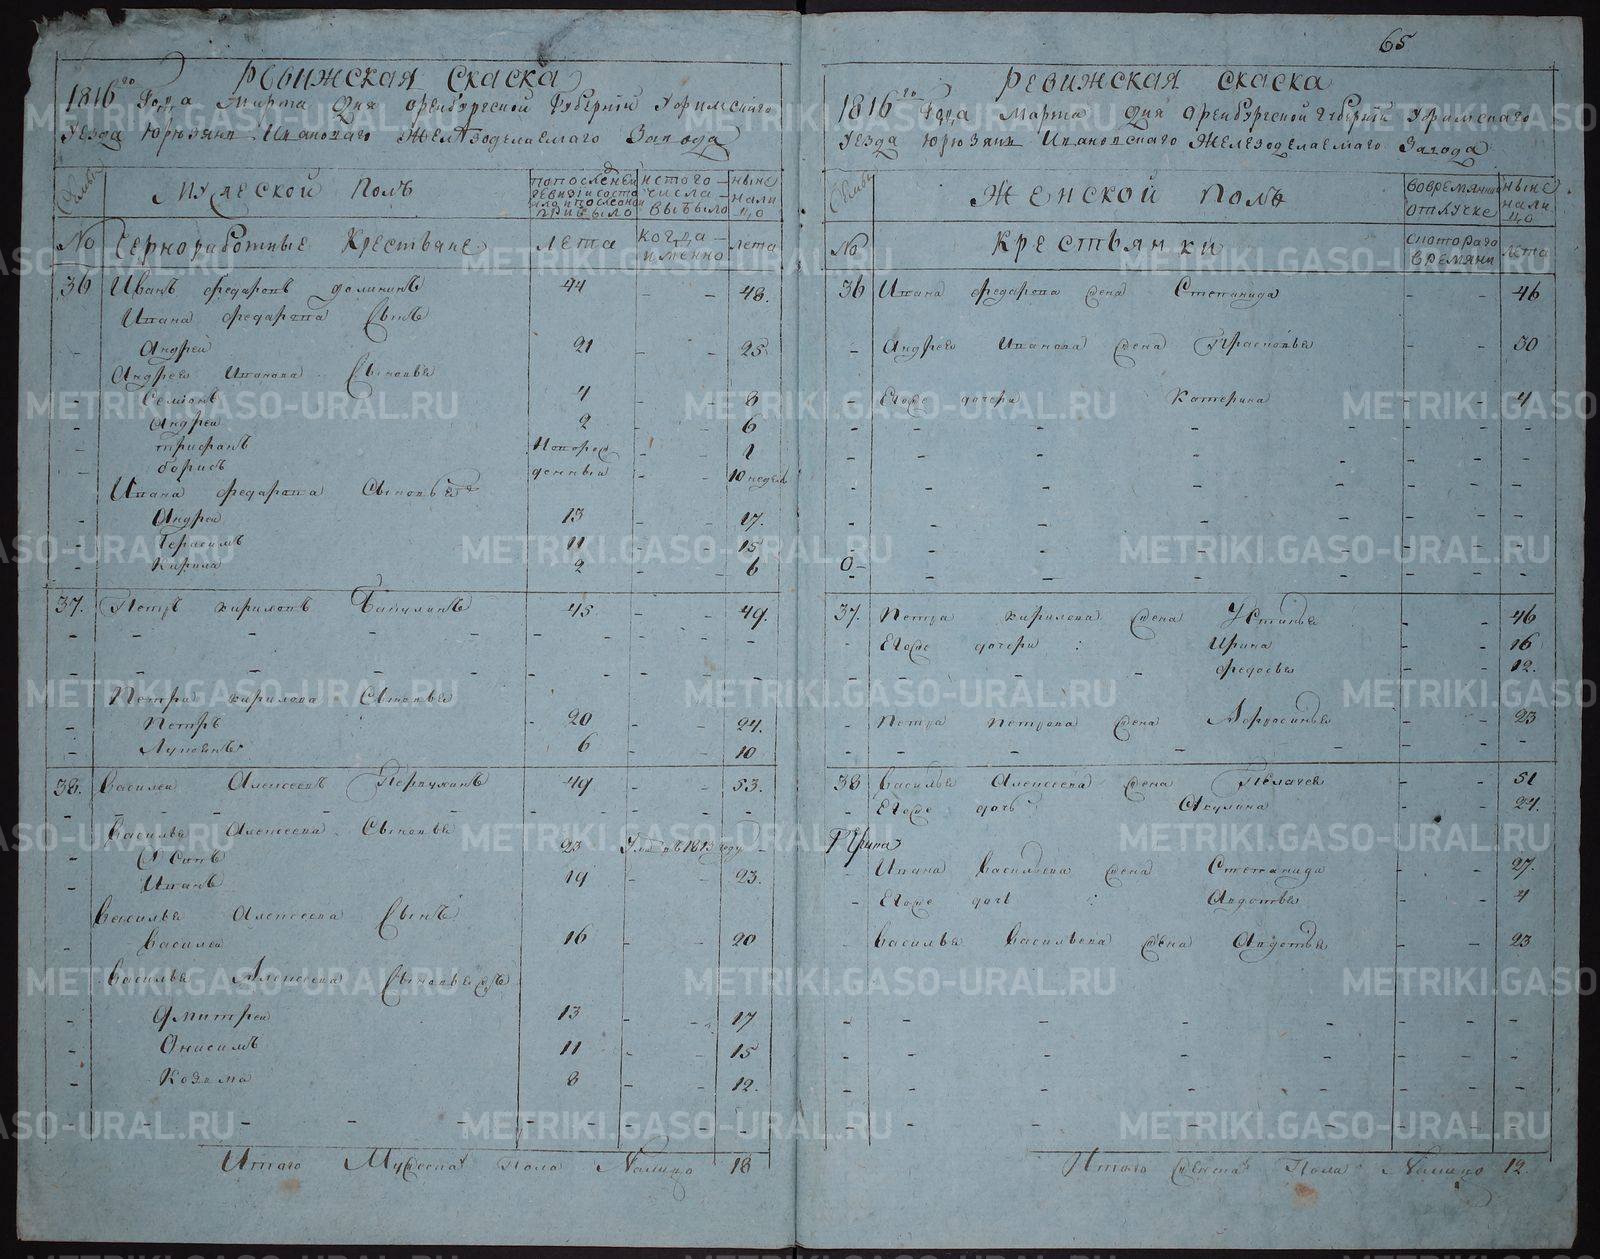 65
Ревижская Скаска
1816го Года Марта Дня Оренбургской Губернїи Уфимскаго
Уезда Юрюзянь Ивановскаго Железоделаемаго Завода
Семьи
Мужеской Полъ
по последней ревизїи состояло и после оной прибыло
из того числа выбыло
ныне на лицо
No
Чернорабочные Крестьяне
лета
когда именно
лета
36 Иванъ Федаровъ долининъ 44 - - 48.
Ивана Федарова Сынъ
- Андрей 21 - - 25
Андрея Иванова Сыновья
- Семіонъ 4 - - 8
- Андрей 2 - - 6
- трифанъ Новорож - - 1
- борисъ денныи - - 10 недель
Ивана Федарова Сыновья
- Андрей 13 - - 17.
- Герасимъ 11 - - 15
- Кирила 2 - - 6
37. Петръ кириловъ 45 - - 49.
Петра кирилова Сыновья
- Петръ 20 - - 24.
- 6 - - 10
38. Василеи Алексеевъ 49 - - 53.
Василья Алексеева Сыновья
- Осипъ 23 въ 1813 году -
- Иванъ 19 - - 23.
Василья Алексеева Сынъ
- Василеи 16 - - 20
Василья Алексеева Сыновья
- Дмитреи 13 - - 17
- Онисимъ 11 - - 15
- Козьма 8 - - 12.
Итого Мужеска Пола Налицо 18
Ревижская Скаска
1816го Года Марта Дня Оренбургской Губернїи Уфимскаго
Уезда Юрюзянь Ивановскаго Железоделаемаго Завода
Семьи
Женской Полъ
во временной отлучке
ныне на лицо
No
Крестьянки
с котораго времяни
лета
36 Ивана Федарова жена Степанида - - 46
- Андрея Иванова жена Прасковья - - 30
- Егоже дочери Катерина - - 4
37. Петра кирилова жена Устинья - - 46
- Егоже дочери : Ирина - - 16
- федосья - - 12.
- Петра петрова жена Афросинья - - 23
38 Василья Алексеева жена Пелагея - - 51
- Егоже дочь Акулина - - 24.
- Ивана Васильева жена Степанида - - 27.
- Егоже дочь : Авдотья - - 4
- Василья Васильева жена Авдотья - - 23
Итого женска Пола Налицо 12.
METRIKI.GASO-URAL.RU